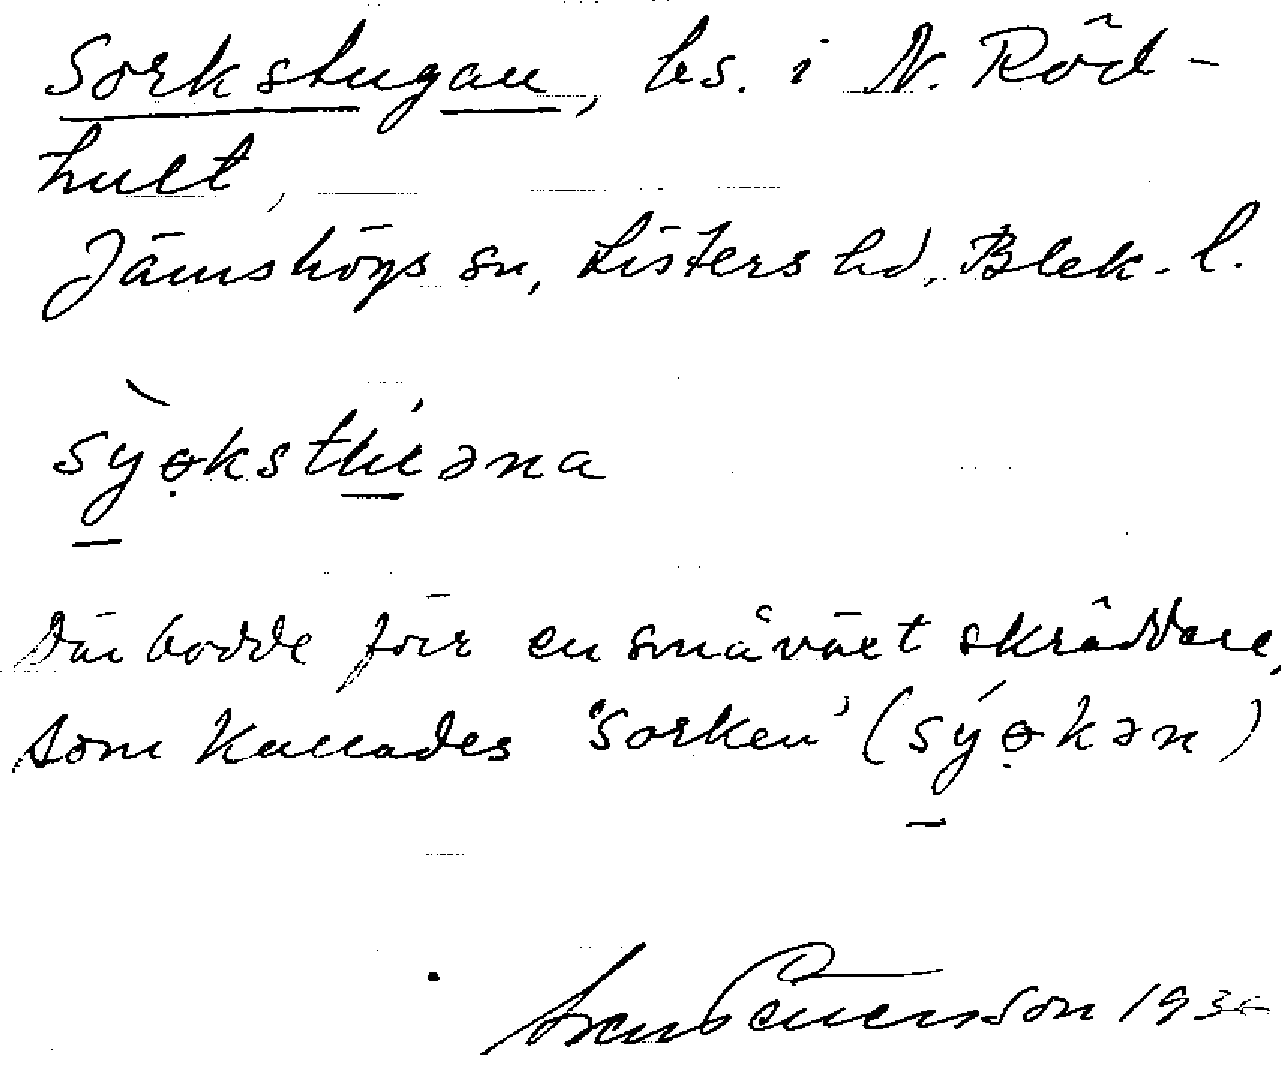 Sorkstugan, bs. i N. Röd-
hult,
Jämshögs sn, Listers hd, Blek. l.
Där bodde förr en småväxt skräddare,
som kallades 'Sorken' (sýɵ̣kən)
Sven 1930